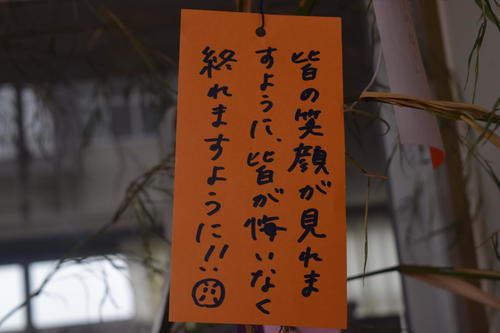 皆の笑顔が見れま
すように、皆が悔いなく
終れますように!!